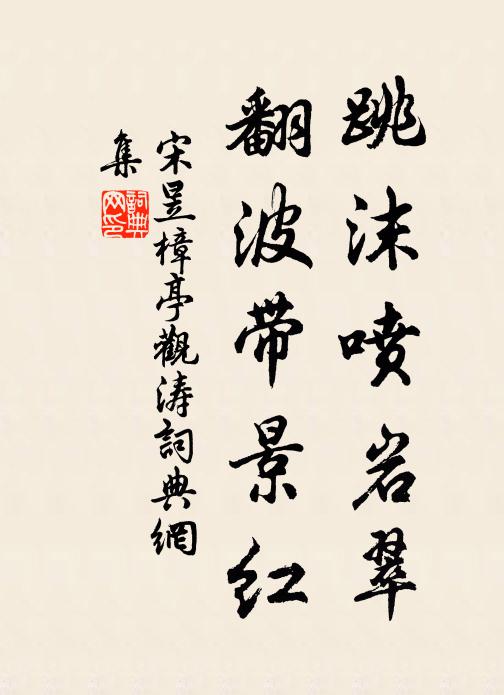 跳沫喷岩翠
翻波带景红
宋昱樟亭觀涛詞典網
集
詞典
网印